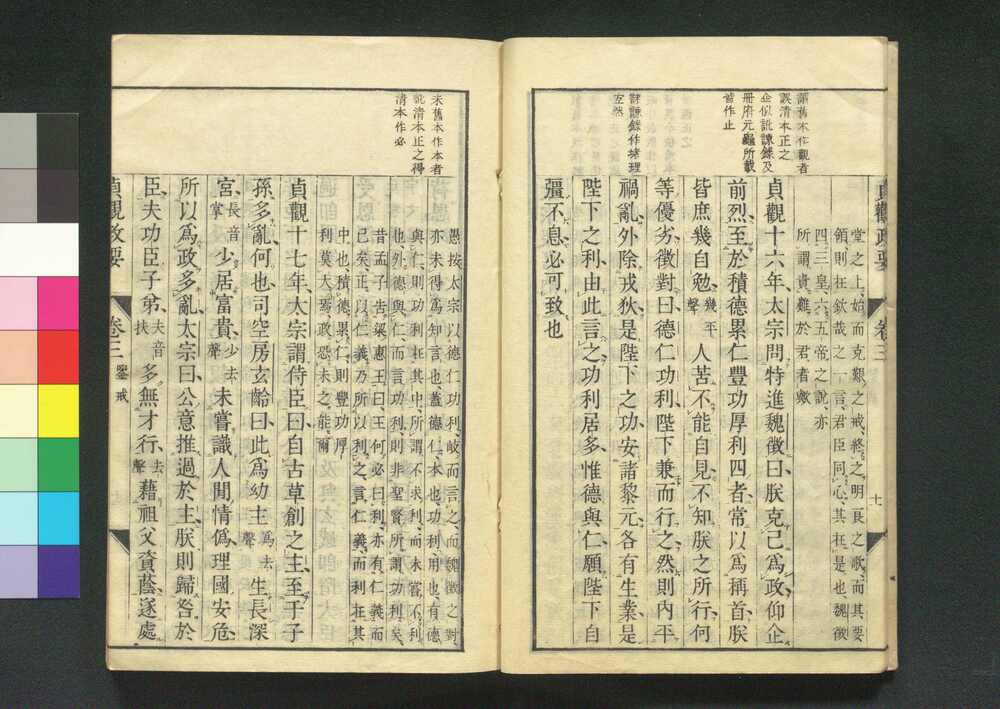 諌舊本作觀者
誤清本正之
企似訛諫錄及
冊府元龜所載
皆作止
諫錄作推理
互然
貞觀政要 卷三 七
堂之上始而克艱之戒終之明良之歌而其要
領則在欽哉之一言君臣同心其在是也魏徵
四三皇六五帝之說亦
所謂責難於君者歟
貞觀十六年太宗問特進魏徵曰朕克己爲政仰企
前烈至於積德累仁豐功厚利四者常以爲稱首朕
皆庶幾自勉幾平聲人苦不能自見不知朕之所行何
等優劣徵對曰德仁功利陛下兼而行之然則内平
禍亂外除戎狄是陛下之功安諸黎元各有生業是
陛下之利由此言之功利居多惟德與仁願陛下自
彊不息必可致也
未舊本作本者
訛清本正之得
清本作必
愚按太宗以德仁功利岐而言之而魏徵之對
亦未得爲知言也蓋德仁本也功利用也有德
與仁則功利在其中所謂不求利而未嘗不利
也外德與仁而言功利則非聖賢所謂功利矣
昔孟子告梁惠王曰王何必曰利亦有仁義而
已矣正以仁義乃所以利之言仁義而利在其
中也積德累仁則豐功厚
利莫大焉政恐未之能爾
貞觀十七年太宗謂侍臣曰自古草創之主至于子
孫多亂何也司空房玄齡曰此爲幼主爲去聲生長深
宮長音掌少居富貴少去聲未嘗識人閒情僞理國安危
所以爲政多亂太宗曰公意推過於主朕則歸咎於
臣夫功臣子弟夫音扶多無才行去聲藉祖父資蔭遂處
貞觀政要 卷三 鑒戒